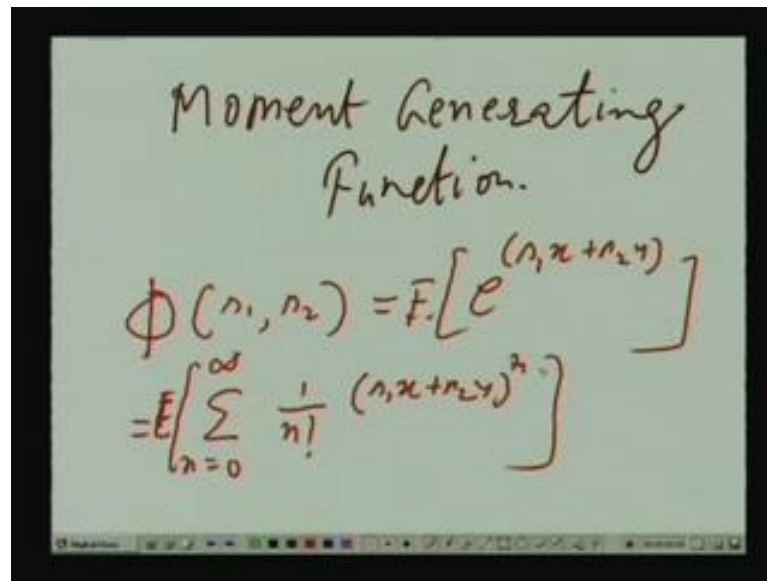 Moment Generating
Function.
Φ(s₁, s₂) = E[e^(s₁x + s₂y)]
= E[∑_{n=0}^{∞} 1/n! (s₁x + s₂y)^n]